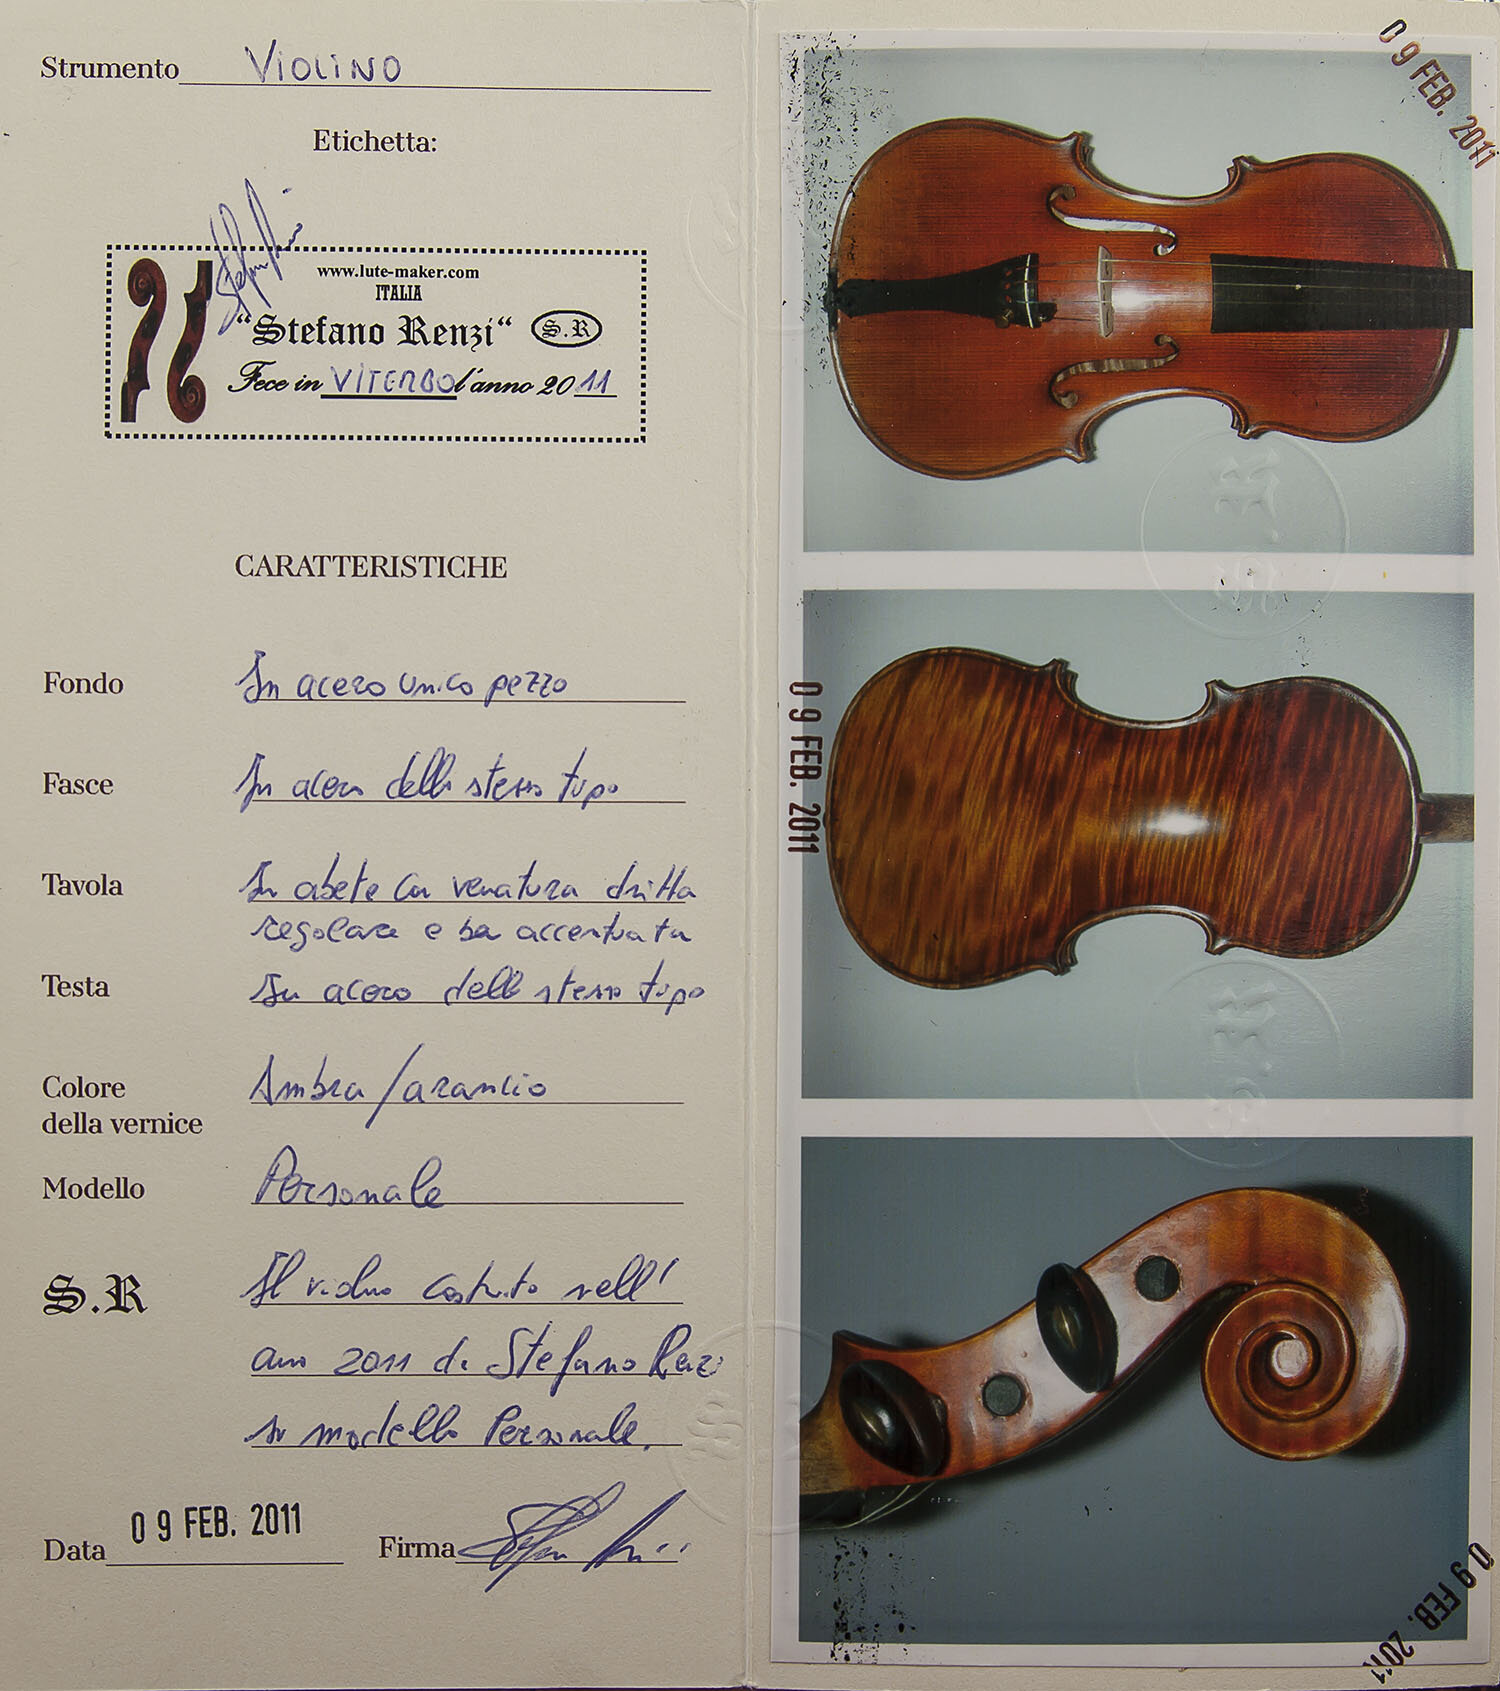 Strumento VIOLINO
Etichetta:
Stefano Renzi
www.lute-maker.com
ITALIA
"Stefano Renzi" S.R
Fece in VITERBO l'anno 2011
CARATTERISTICHE
Fondo In acero unico pezzo
Fasce In acero dello stesso tipo
Tavola In abete con venatura dritta
regolare e ben accentuata
Testa In acero dello stesso tipo
Colore Ambra/arancio
della vernice
Modello Personale
S.R Il violino costruito nell'
anno 2011 da Stefano Renzi
su modello Personale.
Data 09 FEB. 2011 Firma Stefano Renzi
09 FEB. 2011
S.R
09 FEB. 2011
S.R
09 FEB. 2011